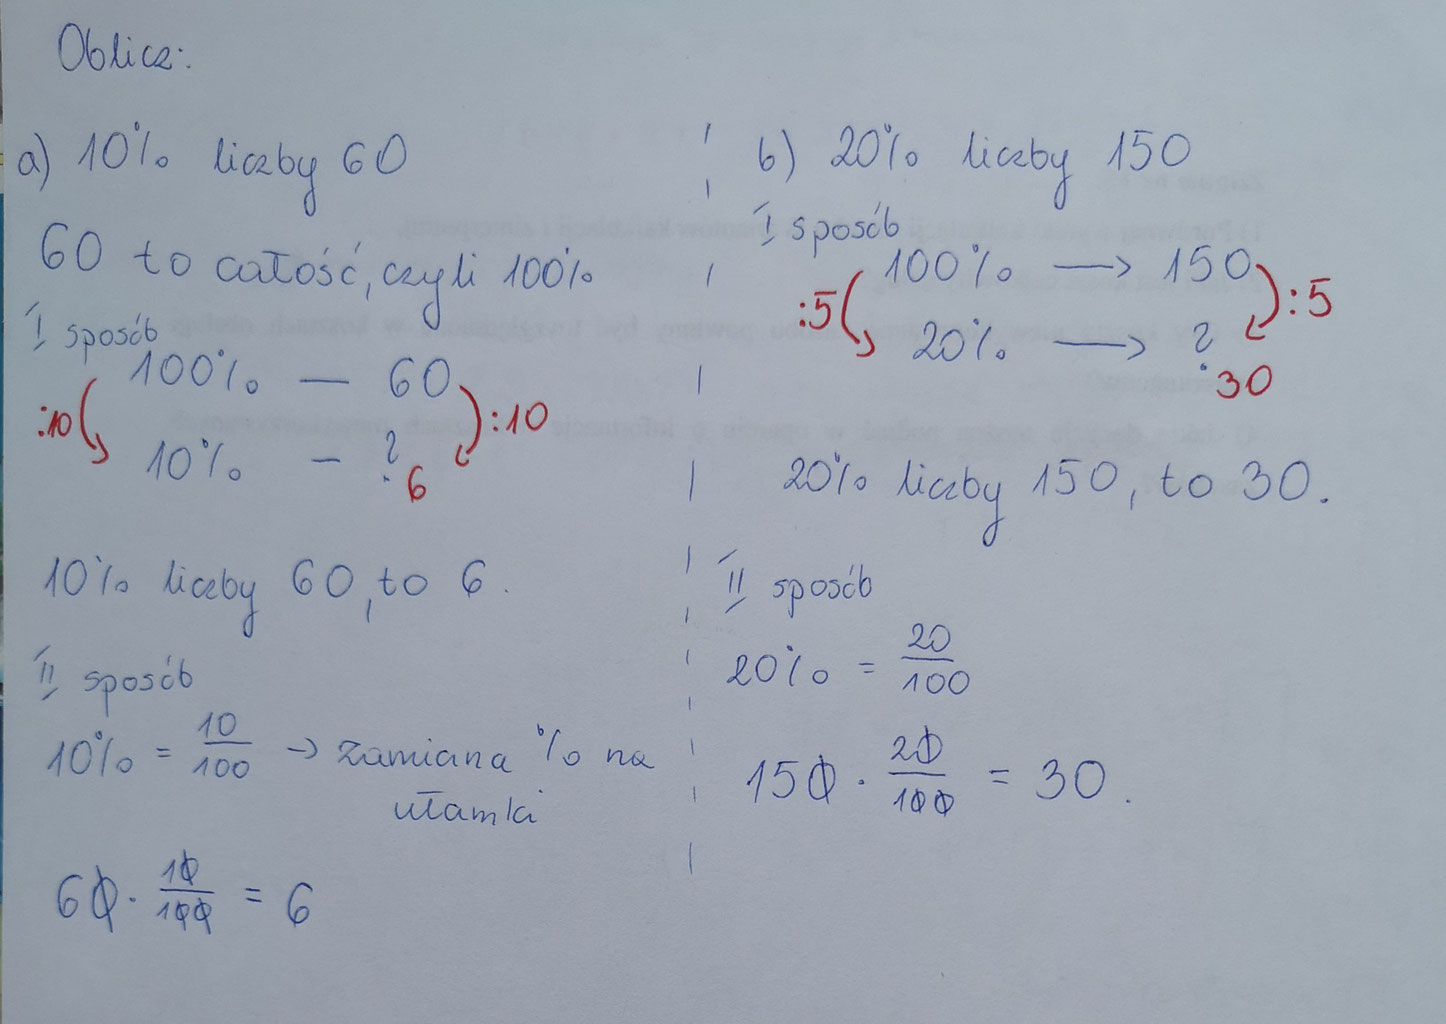 Oblicz:
a) 10% liczby 60
60 to całość, czyli 100%
I sposób
100% — 60
:10 :10
10% — ?
6
10% liczby 60, to 6.
II sposób
10% = 10/100 → zamiana % na
ułamki
60 · 10/100 = 6
b) 20% liczby 150
I sposób
100% → 150
:5 :5
20% → ?
30
20% liczby 150, to 30.
II sposób
20% = 20/100
150 · 20/100 = 30.